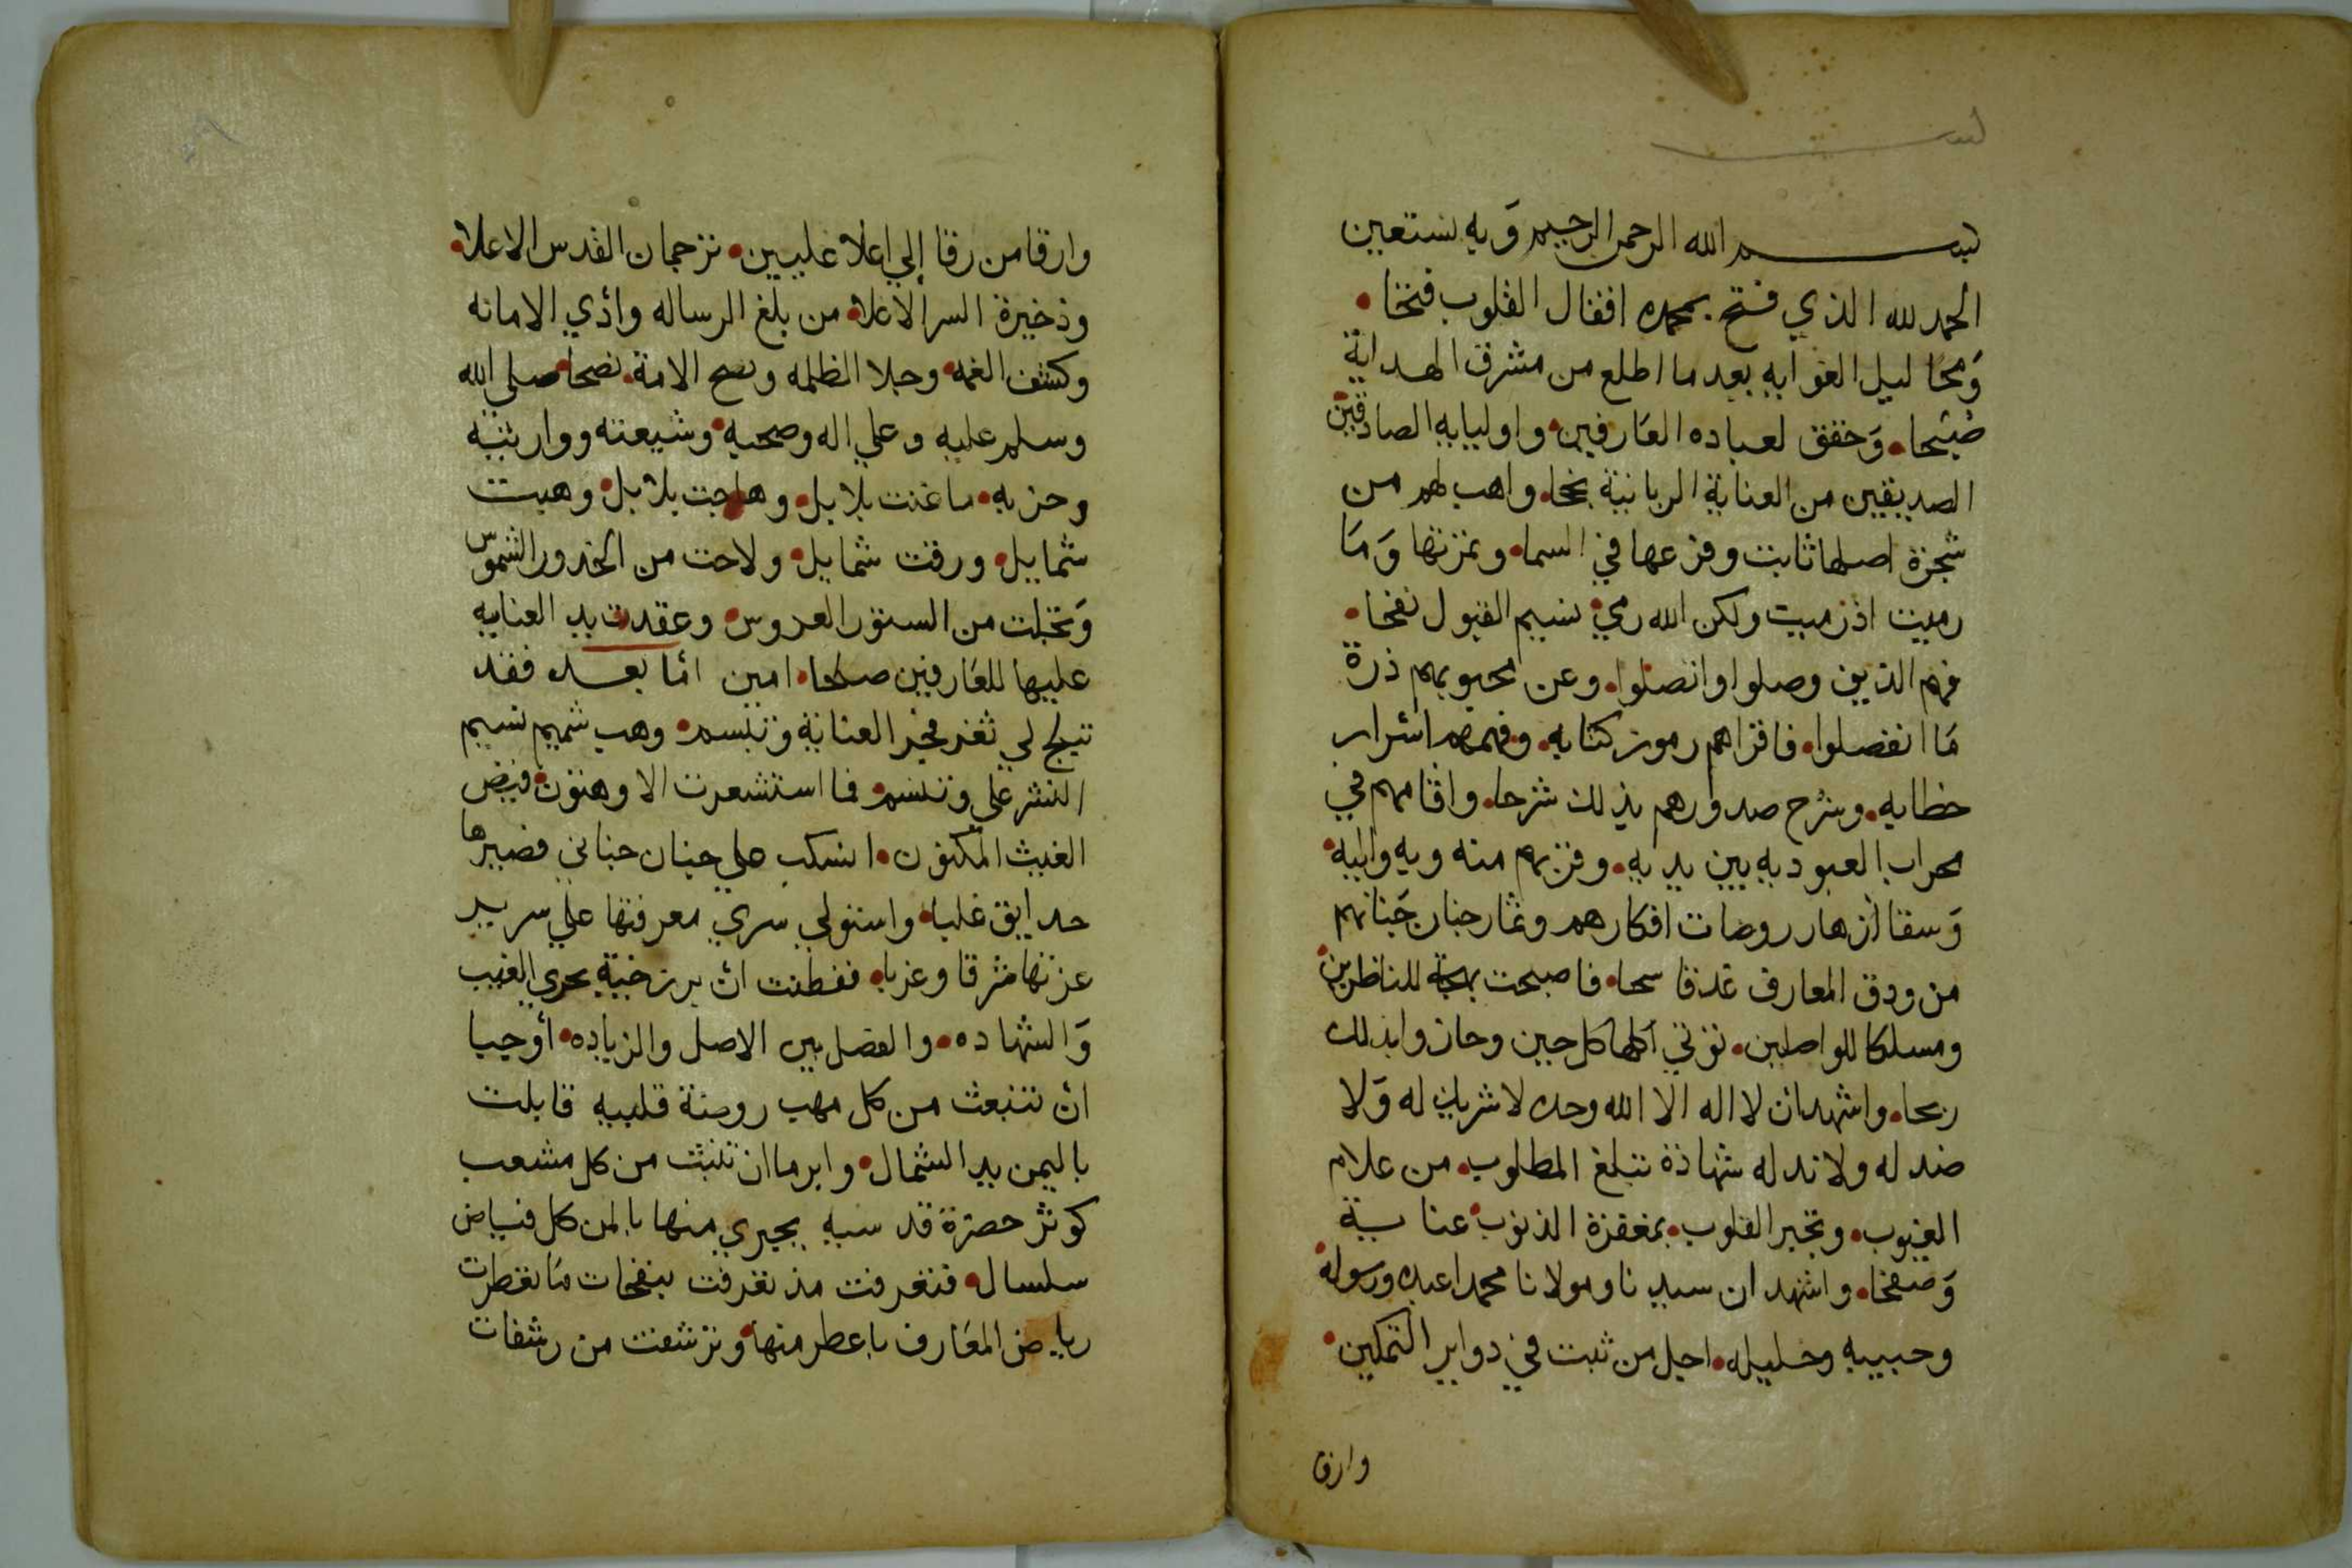 بســـم الله الرحمن الرحيم وَبه نستعين
الحمد لله الذي فتح بحمده اقفال القلوب فتحا •
وَمحَا ليل الغوايه بعد ما اطلع من مشرق الهداية
صُبْحا • وَحقق لعباده العَارفين • واوليايه الصادقين
الصديقين من العناية الربانية نحا • واهب لهم من
شجرة اصلها ثابت وفرعها في السما • وثمرتها وَمَا
رميت اذ رميت ولكن الله رمي نسيم القبول نفحا •
فهم الذين وصلوا واتصلوا • وعن محبوبهم ذرة
مَا انفصلوا • فاقراهم رموز كتابه • وفهمهم اسْرار
خطابه • وشرح صدورهم بذلك شرحا • واقامهم في
محراب العبوديه بين يديه • وقربهم منه وبه واليه •
وَسقا ازهار روضات افكارهم وثمار جنان جَنانهم
من ودق المعارف غدقا سحا • فاصبحت بهجة للناظرين •
ومسلكا للواصلين • تؤتي اكلها كل حين وحازوا بذلك
ربحا • واشهد ان لا اله الا الله وحده لا شريك له وَلا
ضد له ولا ند له شهادة تبلغ المطلوب • من علام
الغيوب • وتجبر القلوب • بمغفرة الذنوب • عناية
وَصفحا • واشهد ان سيدنا ومولانا محمدا عبده ورسوله •
وحبيبه وخليله • اجل من ثبت في دواير التمكين •
وارق
وارقا من رقا إلي اعلا عليين • ترجمان القدس الاعلا •
وذخيرة السر الاغلا • من بلغ الرساله وادي الامانه
وكشف الغمه • وجلا الظلمه ونصح الامة • نصحا • صلي الله
وسلم عليه وعلي اله وصحبه • وشيعته ووارثيه
وحزبه • ما غنت بلابل • وهاجت بلابل • وهبت
شمايل • ورقت شمايل • ولاحت من الخدور الشموس
وَتجلت من الستور العروس • وعقدت يد العنايه
عليها للعَارفين صلحا • امين امَا بعـد فقد
تبلج لي ثغر فجر العناية وتبسم • وهب شميم نسيم
النشر علي وتنسم • فما استشعرت الا وهتون • فيض
الغيث المكنون • انسكب علي جنان جناني فصيرها
حدايق غلبا • واستولي سري معرفتها علي سرير
عزتها شرقا وغربا • ففطنت ان برزخية بحري الغيب
وَالشهاده • والفصل بين الاصل والزياده • أوجبا
ان تنبعث من كل مهب روضة قلبيه قابلت
باليمن يد الشمال • وابرما ان تنبث من كل مشعب
كوثر حضرة قدسيه يجري منها بالمن كل فياض
سلسال • فتعرفت مذ تعرفت بنفحات مَا تعطرت
رياض المعَارف باعطر منها • وترشفت من رشفات